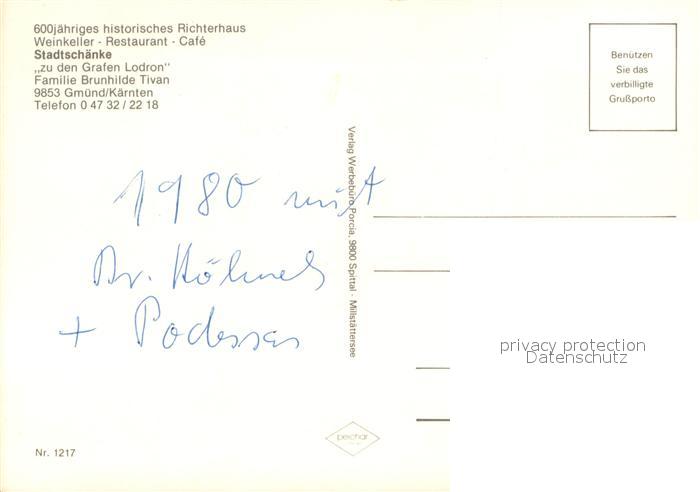 600jähriges historisches Richterhaus
Weinkeller - Restaurant - Café
Stadtschänke
„zu den Grafen Lodron"
Familie Brunhilde Tivan
9853 Gmünd/Kärnten
Telefon 0 47 32 / 22 18
Benützen
Sie das
verbilligte
Grußporto
Verlag Werbebüro Porcia, 9800 Spittal - Millstättersee
1980 mit
Dr.
+
privacy protection
Datenschutz
peichar
Nr. 1217